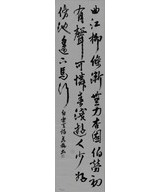 曲江柳條漸無力杏園伯勞初
有聲可憐春淺遊人少好
傍池邊下馬行